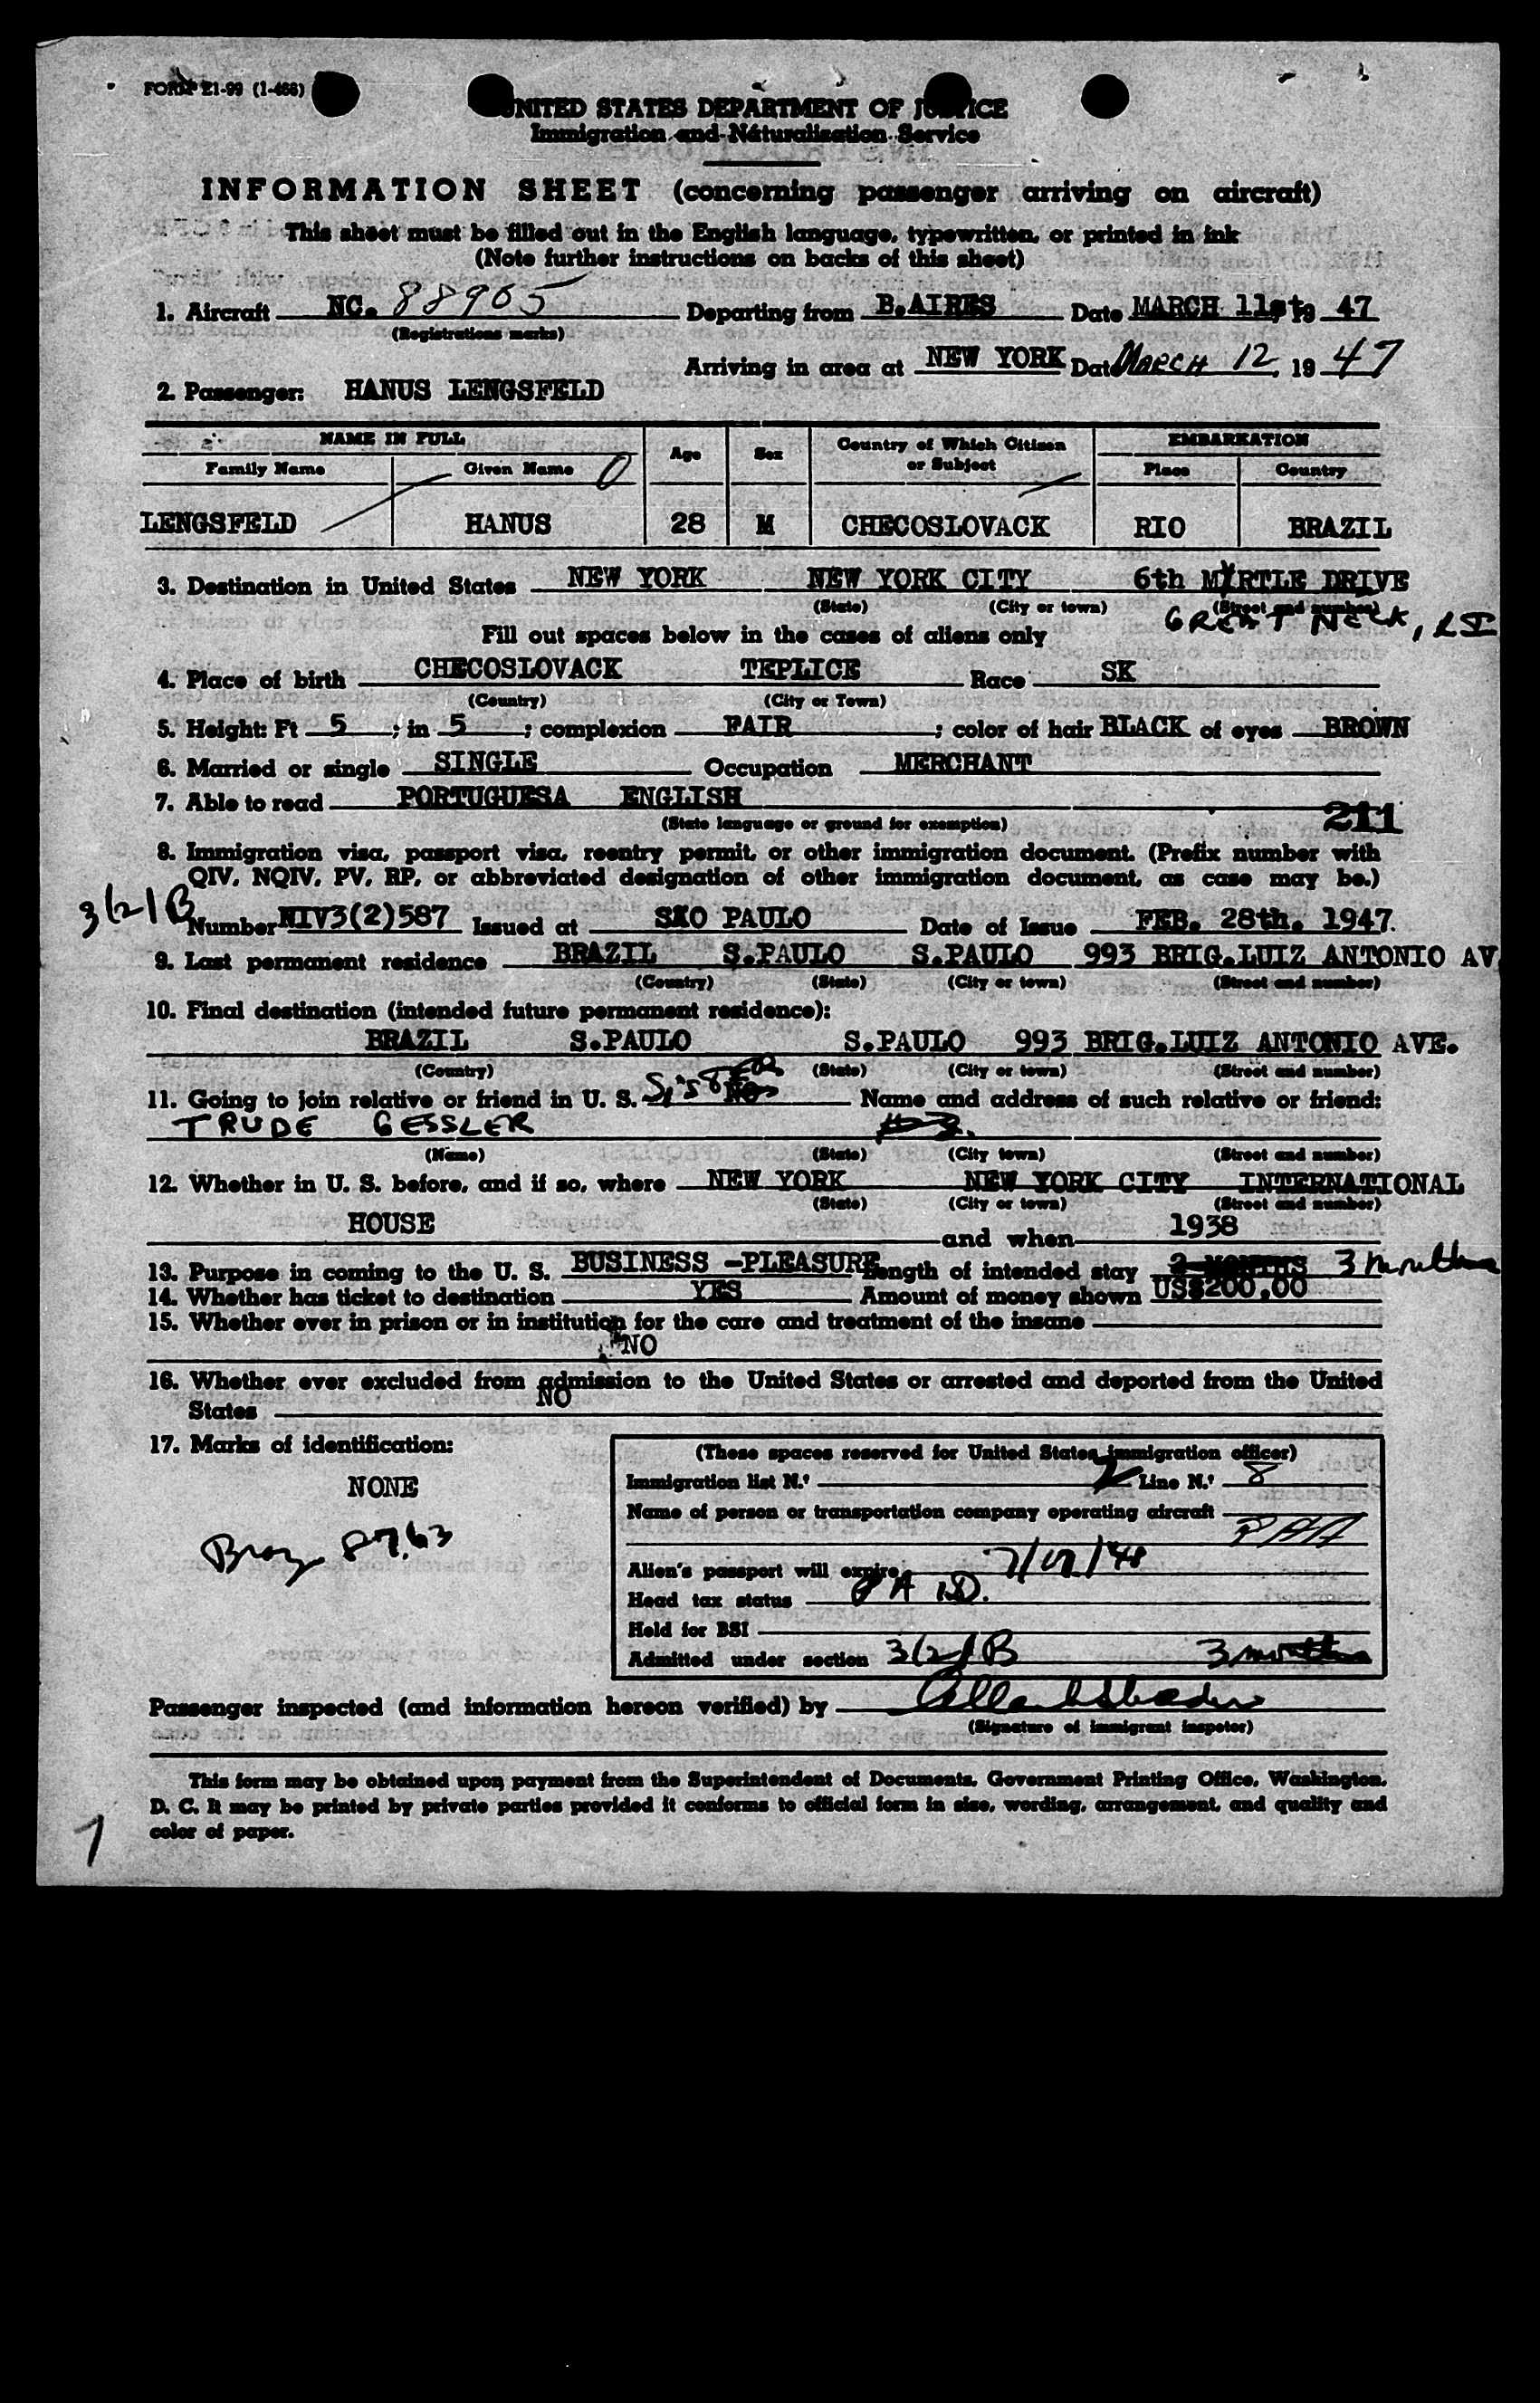 FORM I-99 (I-466)
UNITED STATES DEPARTMENT OF JUSTICE
Immigration and Naturalization Service
INFORMATION SHEET (concerning passenger arriving on aircraft)
This sheet must be filled out in the English language, typewritten, or printed in ink
(Note further instructions on backs of this sheet)
1. Aircraft NC. 88905 Departing from B.AIRES Date MARCH 11st, 19 47
(Registrations marks)
Arriving in area at NEW YORK Date MARCH 12 19 47
2. Passenger: HANUS LENGSFELD
NAME IN FULL Age Sex Country of Which Citizen or Subject EMBARKATION
Family Name Given Name Place Country
LENGSFELD HANUS 28 M CHECOSLOVACK RIO BRAZIL
3. Destination in United States NEW YORK NEW YORK CITY 6th MYRTLE DRIVE
(State) (City or town) (Street and number)
GREAT NECK, LI
Fill out spaces below in the cases of aliens only
4. Place of birth CHECOSLOVACK TEPLICE Race SK
(Country) (City or Town)
5. Height: Ft 5 ; in 5 ; complexion FAIR ; color of hair BLACK of eyes BROWN
6. Married or single SINGLE Occupation MERCHANT
7. Able to read PORTUGUESA ENGLISH
(State language or ground for exemption)
211
8. Immigration visa, passport visa, reentry permit, or other immigration document. (Prefix number with
QIV, NQIV, PV, RP, or abbreviated designation of other immigration document, as case may be.)
3(2)B
Number NIV3(2)587 Issued at SÃO PAULO Date of Issue FEB. 28th. 1947.
9. Last permanent residence BRAZIL S.PAULO S.PAULO 993 BRIG.LUIZ ANTONIO AV
(Country) (State) (City or town) (Street and number)
10. Final destination (intended future permanent residence):
BRAZIL S.PAULO S.PAULO 993 BRIG.LUIZ ANTONIO AVE.
(Country) (State) (City or town) (Street and number)
11. Going to join relative or friend in U. S. SISTER NO Name and address of such relative or friend:
TRUDE GESSLER
(Name) (State) (City town) (Street and number)
12. Whether in U. S. before, and if so, where NEW YORK NEW YORK CITY INTERNATIONAL
(State) (City or town) (Street and number)
HOUSE and when 1938
13. Purpose in coming to the U. S. BUSINESS -PLEASURE Length of intended stay 2 MONTHS 3 months
14. Whether has ticket to destination YES Amount of money shown US$200,00
15. Whether ever in prison or in institution for the care and treatment of the insane
NO
16. Whether ever excluded from admission to the United States or arrested and deported from the United
States NO
17. Marks of identification:
NONE
(These spaces reserved for United States immigration officer)
Immigration list N.º Line N.º 8
Name of person or transportation company operating aircraft
PAA
Alien's passport will expire 7/17/48
Head tax status PAID.
Held for BSI
Admitted under section 3(2)B 3 months
Passenger inspected (and information hereon verified) by
(Signature of immigrant inspetor)
This form may be obtained upon payment from the Superintendent of Documents, Government Printing Office, Washington,
D. C. It may be printed by private parties provided it conforms to official form in size, wording, arrangement, and quality and
color of paper.